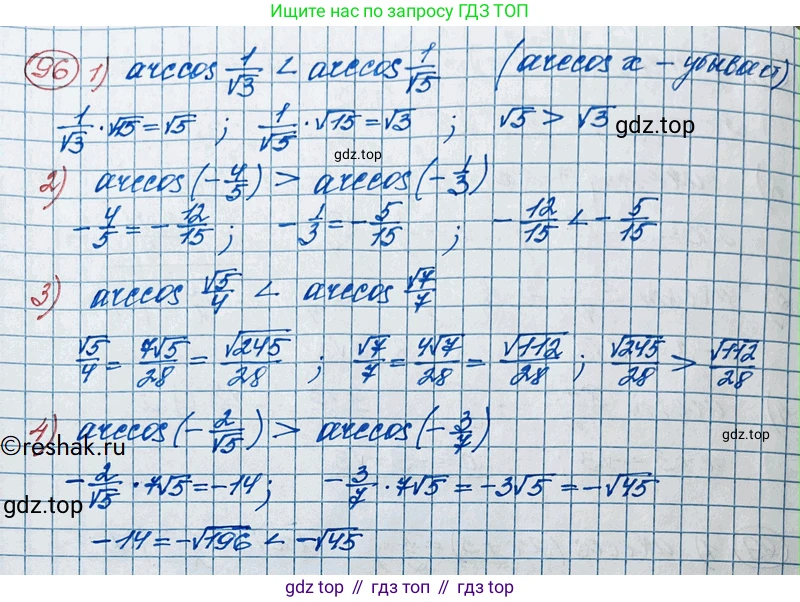 Ищите нас по запросу ГДЗ ТОП
96 1) arccos 1/√3 < arccos 1/√5 (arccos x – убывает)
1/√3 · √15 = √5 ; 1/√5 · √15 = √3 ; √5 > √3
gdz.top
gdz.top
2) arccos(-4/5) > arccos(-1/3)
-4/5 = -12/15 ; -1/3 = -5/15 ; -12/15 < -5/15
3) arccos √5/4 < arccos √7/7
√5/4 = 7√5/28 = √245/28 ; √7/7 = 4√7/28 = √112/28 ; √245/28 > √112/28
4) arccos(-2/√5) > arccos(-3/7)
©reshak.ru
gdz.top
-2/√5 · 7√5 = -14 ; -3/7 · 7√5 = -3√5 = -√45
gdz.top
gdz.top
-14 = -√196 < -√45
gdz.top // гдз топ // гдз.топ